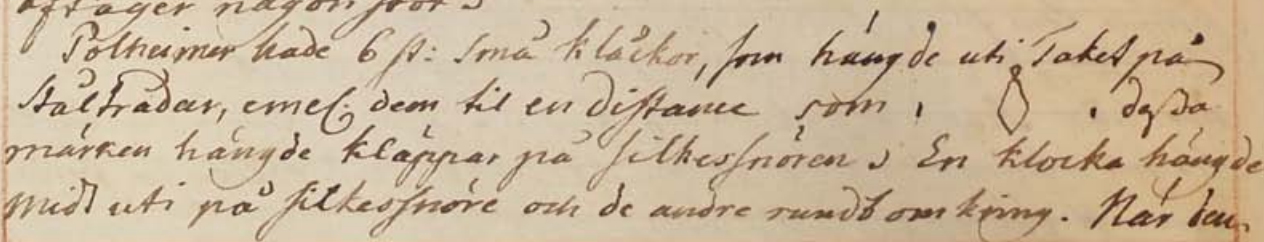 aftager någon stor
Polheimer hade 6 st: små klåckor, som hängde uti Taket på
Ståltrådar, emel: dem til en distance som , . dessa
märken hängde kläppar på silkessnören ) En klocka hängde
midt uti på silkessnöre och de andre rundt omkring. När den